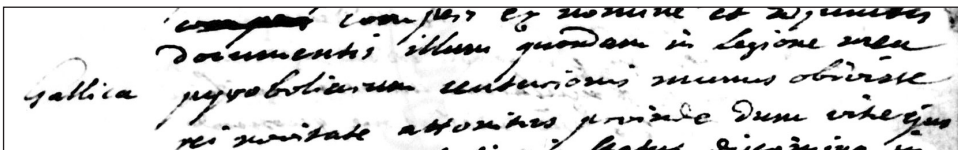 comperi ex nomine et adjunctis
documentis illum quondam in legione mea
Gallica pyroboliarium centurionis munus obivisse
rei novitate attonitus proinde dum vitae ejus